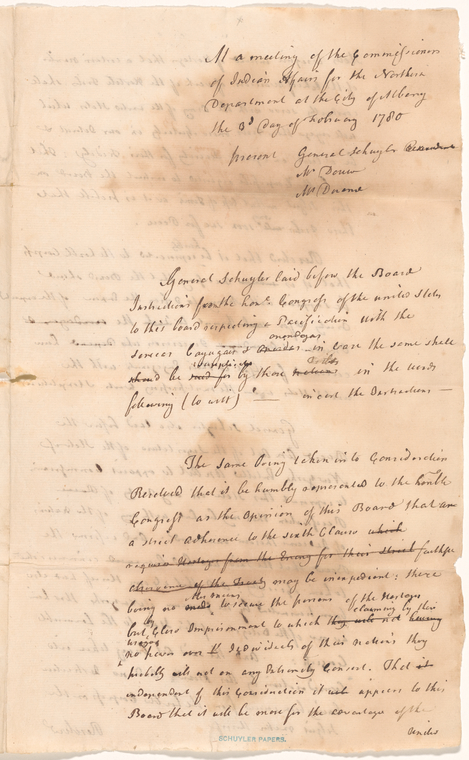 At a meeting of the Commissioners
of Indian Affairs for the Northern
Department at the City of Albany
the 3d Day of February 1780
present General Schuyler President
Mr Douw
Mr Duane
General Schuyler laid before the Board
Instructions from the honl. Congress of the united States
to this board respecting a Pacification with the
onondagas
Senecas Cayugas & Onondas in case the same shall
Tribes
should be sued for by those nations in the words
following (to wit) — insert the Instructions —
The same being taken into Consideration
Resolved that it be humbly represented to the honble
Congress as the Opinion of this Board that
a strict adherence to the sixth Clause which
require Hostage from the Enemy for their strict faithful
observance of the Treaty may be inexpedient: there
other means
being no mode to secure the persons of the Hostage
claiming by their
but Close Imprisonment to which they will not having
no power over Individuals of their nation they
probably will not on any Extremity Consent. That
independent of this Consideration it appears to this
Board that it will be more for the advantage of the
United
SCHUYLER PAPERS.